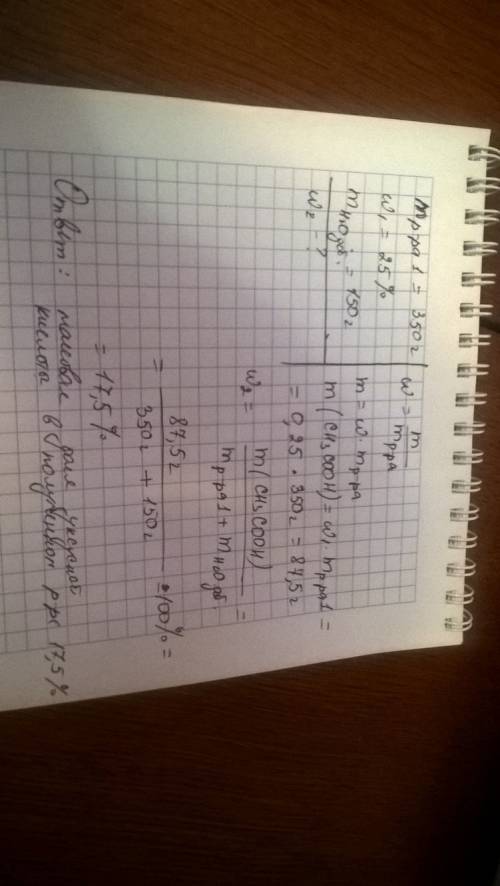 m р-ра 1 = 350 г
w₁ = 25 %
m H₂O доб. = 150 г
w₂ - ?
w = m / m р-ра
m = w · m р-ра
m (CH₃COOH) = w₁ · m р-ра 1 =
= 0,25 · 350 г = 87,5 г
w₂ = m (CH₃COOH) / m р-ра 1 + m H₂O доб. =
= 87,5 г / 350 г + 150 г · 100 % =
= 17,5 %
Ответ: массовая доля уксусной
кислоты в полученном р-ре 17,5 %